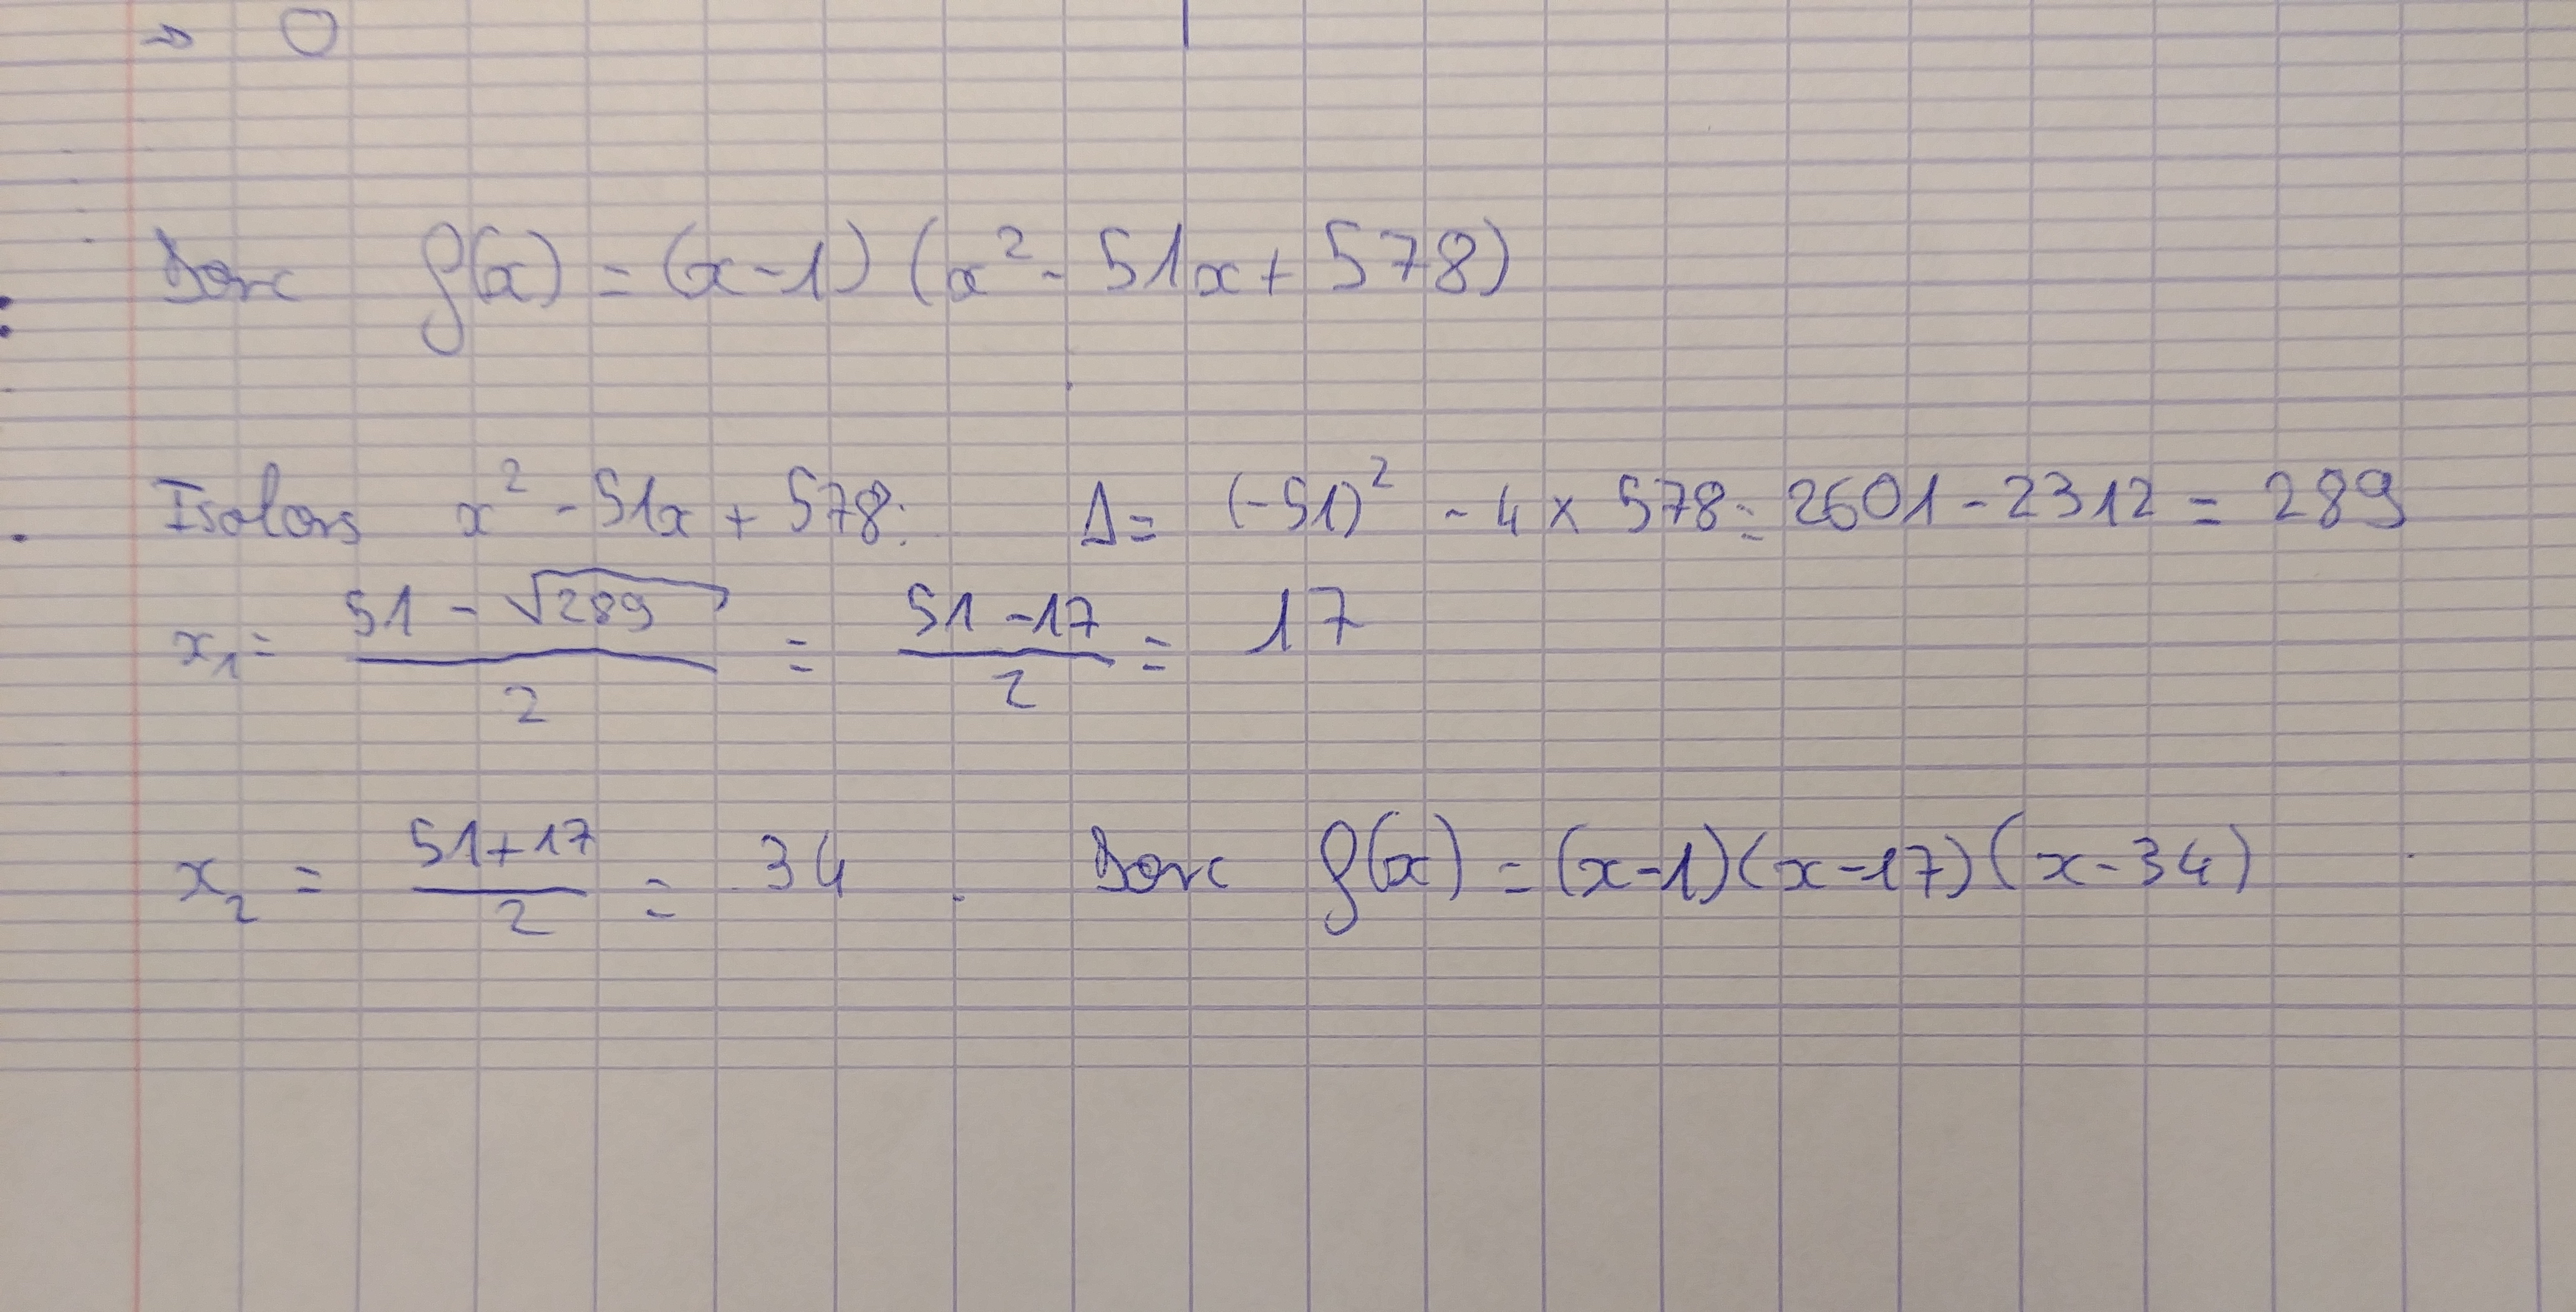 → 0
Donc f(x) = (x-1) (x² - 51x + 578)
Isolons x² - 51x + 578: Δ = (-51)² - 4 × 578 = 2601 - 2312 = 289
x₁ = (51 - √289)/2 = (51 - 17)/2 = 17
x₂ = (51 + 17)/2 = 34. Donc f(x) = (x-1)(x-17)(x-34)